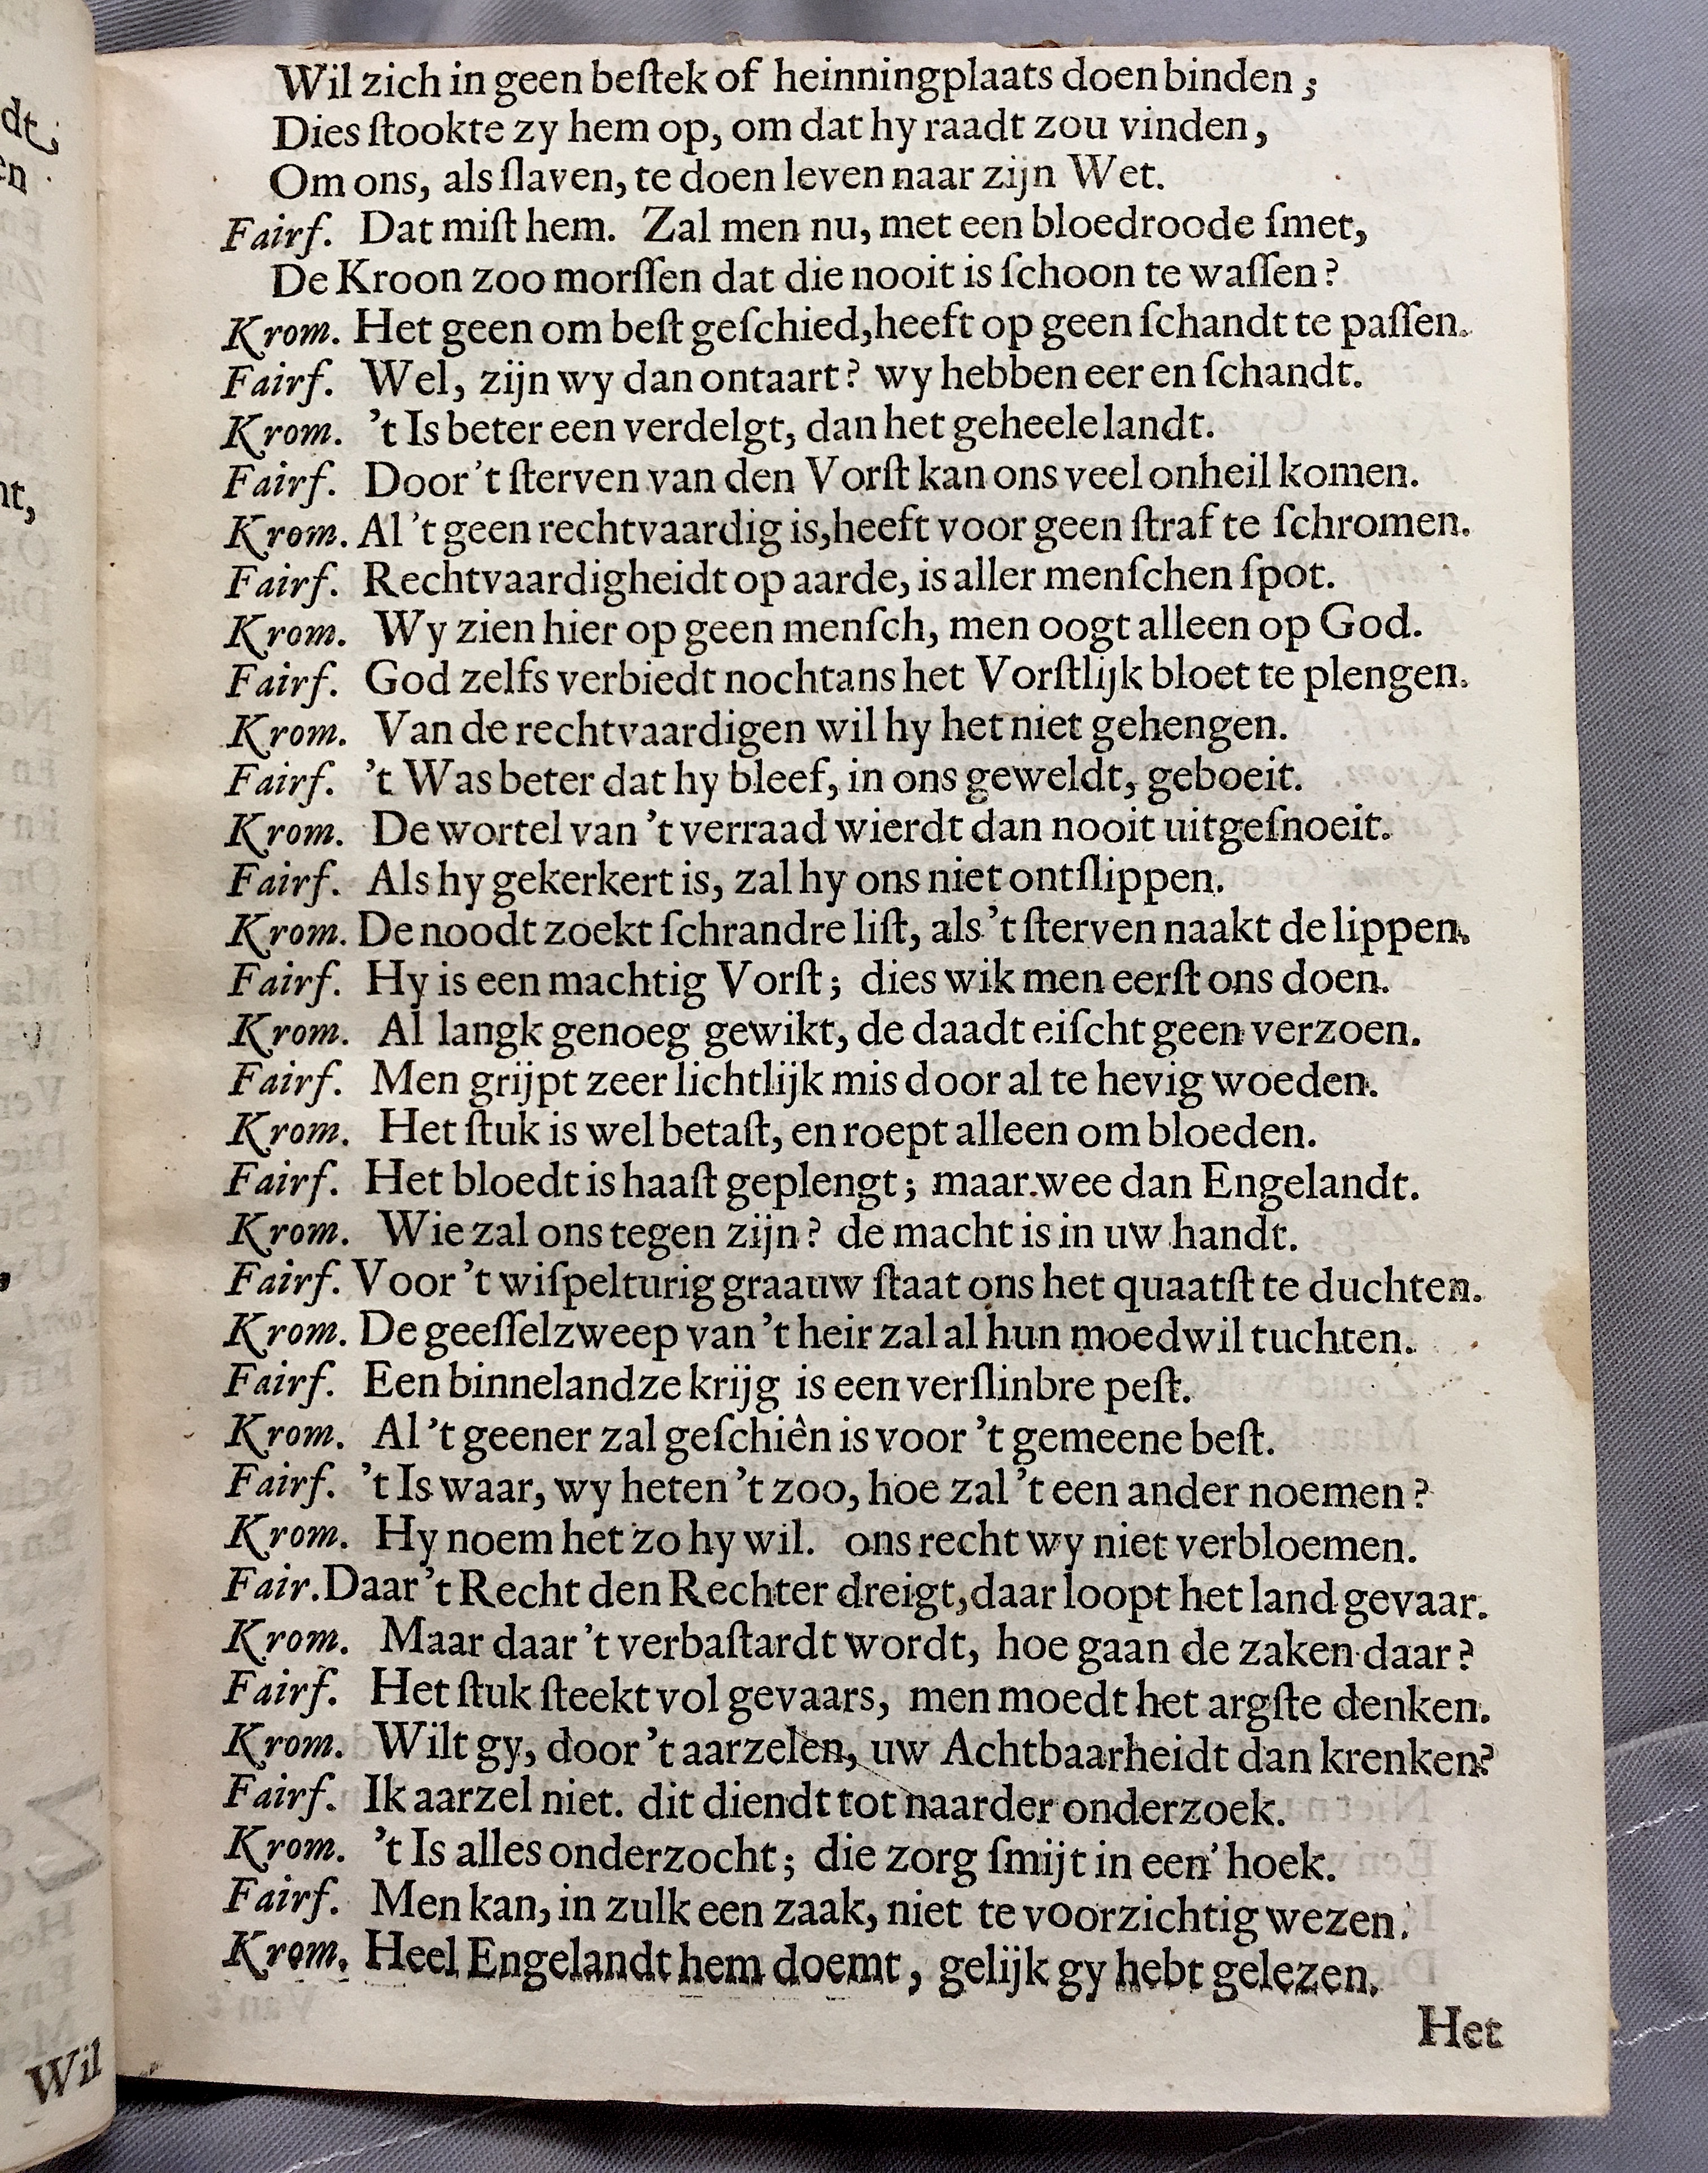 Wil zich in geen beſtek of heinningplaats doen binden ;
Dies ſtookte zy hem op, om dat hy raadt zou vinden,
Om ons, als ſlaven, te doen leven naar zijn Wet.
Fairf. Dat miſt hem. Zal men nu, met een bloedroode ſmet,
De Kroon zoo morſſen dat die nooit is ſchoon te waſſen?
Krom. Het geen om beſt geſchied, heeft op geen ſchandt te paſſen.
Fairf. Wel, zijn wy dan ontaart? wy hebben eer en ſchandt.
Krom. 't Is beter een verdelgt, dan het geheele landt.
Fairf. Door 't ſterven van den Vorſt kan ons veel onheil komen.
Krom. Al 't geen rechtvaardig is, heeft voor geen ſtraf te ſchromen.
Fairf. Rechtvaardigheidt op aarde, is aller menſchen ſpot.
Krom. Wy zien hier op geen menſch, men oogt alleen op God.
Fairf. God zelfs verbiedt nochtans het Vorſtlijk bloet te plengen.
Krom. Van de rechtvaardigen wil hy het niet gehengen.
Fairf. 't Was beter dat hy bleef, in ons geweldt, geboeit.
Krom. De wortel van 't verraad wierdt dan nooit uitgeſnoeit.
Fairf. Als hy gekerkert is, zal hy ons niet ontſlippen.
Krom. De noodt zoekt ſchrandre liſt, als 't ſterven naakt de lippen.
Fairf. Hy is een machtig Vorſt; dies wik men eerſt ons doen.
Krom. Al langk genoeg gewikt, de daadt eiſcht geen verzoen.
Fairf. Men grijpt zeer lichtlijk mis door al te hevig woeden.
Krom. Het ſtuk is wel betaſt, en roept alleen om bloeden.
Fairf. Het bloedt is haaſt geplengt; maar wee dan Engelandt.
Krom. Wie zal ons tegen zijn? de macht is in uw handt.
Fairf. Voor 't wiſpelturig graauw ſtaat ons het quaatſt te duchten.
Krom. De geeſſelzweep van 't heir zal al hun moedwil tuchten.
Fairf. Een binnelandze krijg is een verſlinbre peſt.
Krom. Al 't geener zal geſchiên is voor 't gemeene beſt.
Fairf. 't Is waar, wy heten 't zoo, hoe zal 't een ander noemen?
Krom. Hy noem het zo hy wil. ons recht wy niet verbloemen.
Fair. Daar 't Recht den Rechter dreigt, daar loopt het land gevaar.
Krom. Maar daar 't verbaſtardt wordt, hoe gaan de zaken daar?
Fairf. Het ſtuk ſteekt vol gevaars, men moedt het argſte denken.
Krom. Wilt gy, door 't aarzelen, uw Achtbaarheidt dan krenken?
Fairf. Ik aarzel niet. dit diendt tot naarder onderzoek.
Krom. 't Is alles onderzocht; die zorg ſmijt in een' hoek.
Fairf. Men kan, in zulk een zaak, niet te voorzichtig wezen.
Krom. Heel Engelandt hem doemt, gelijk gy hebt gelezen.
Het
Wil